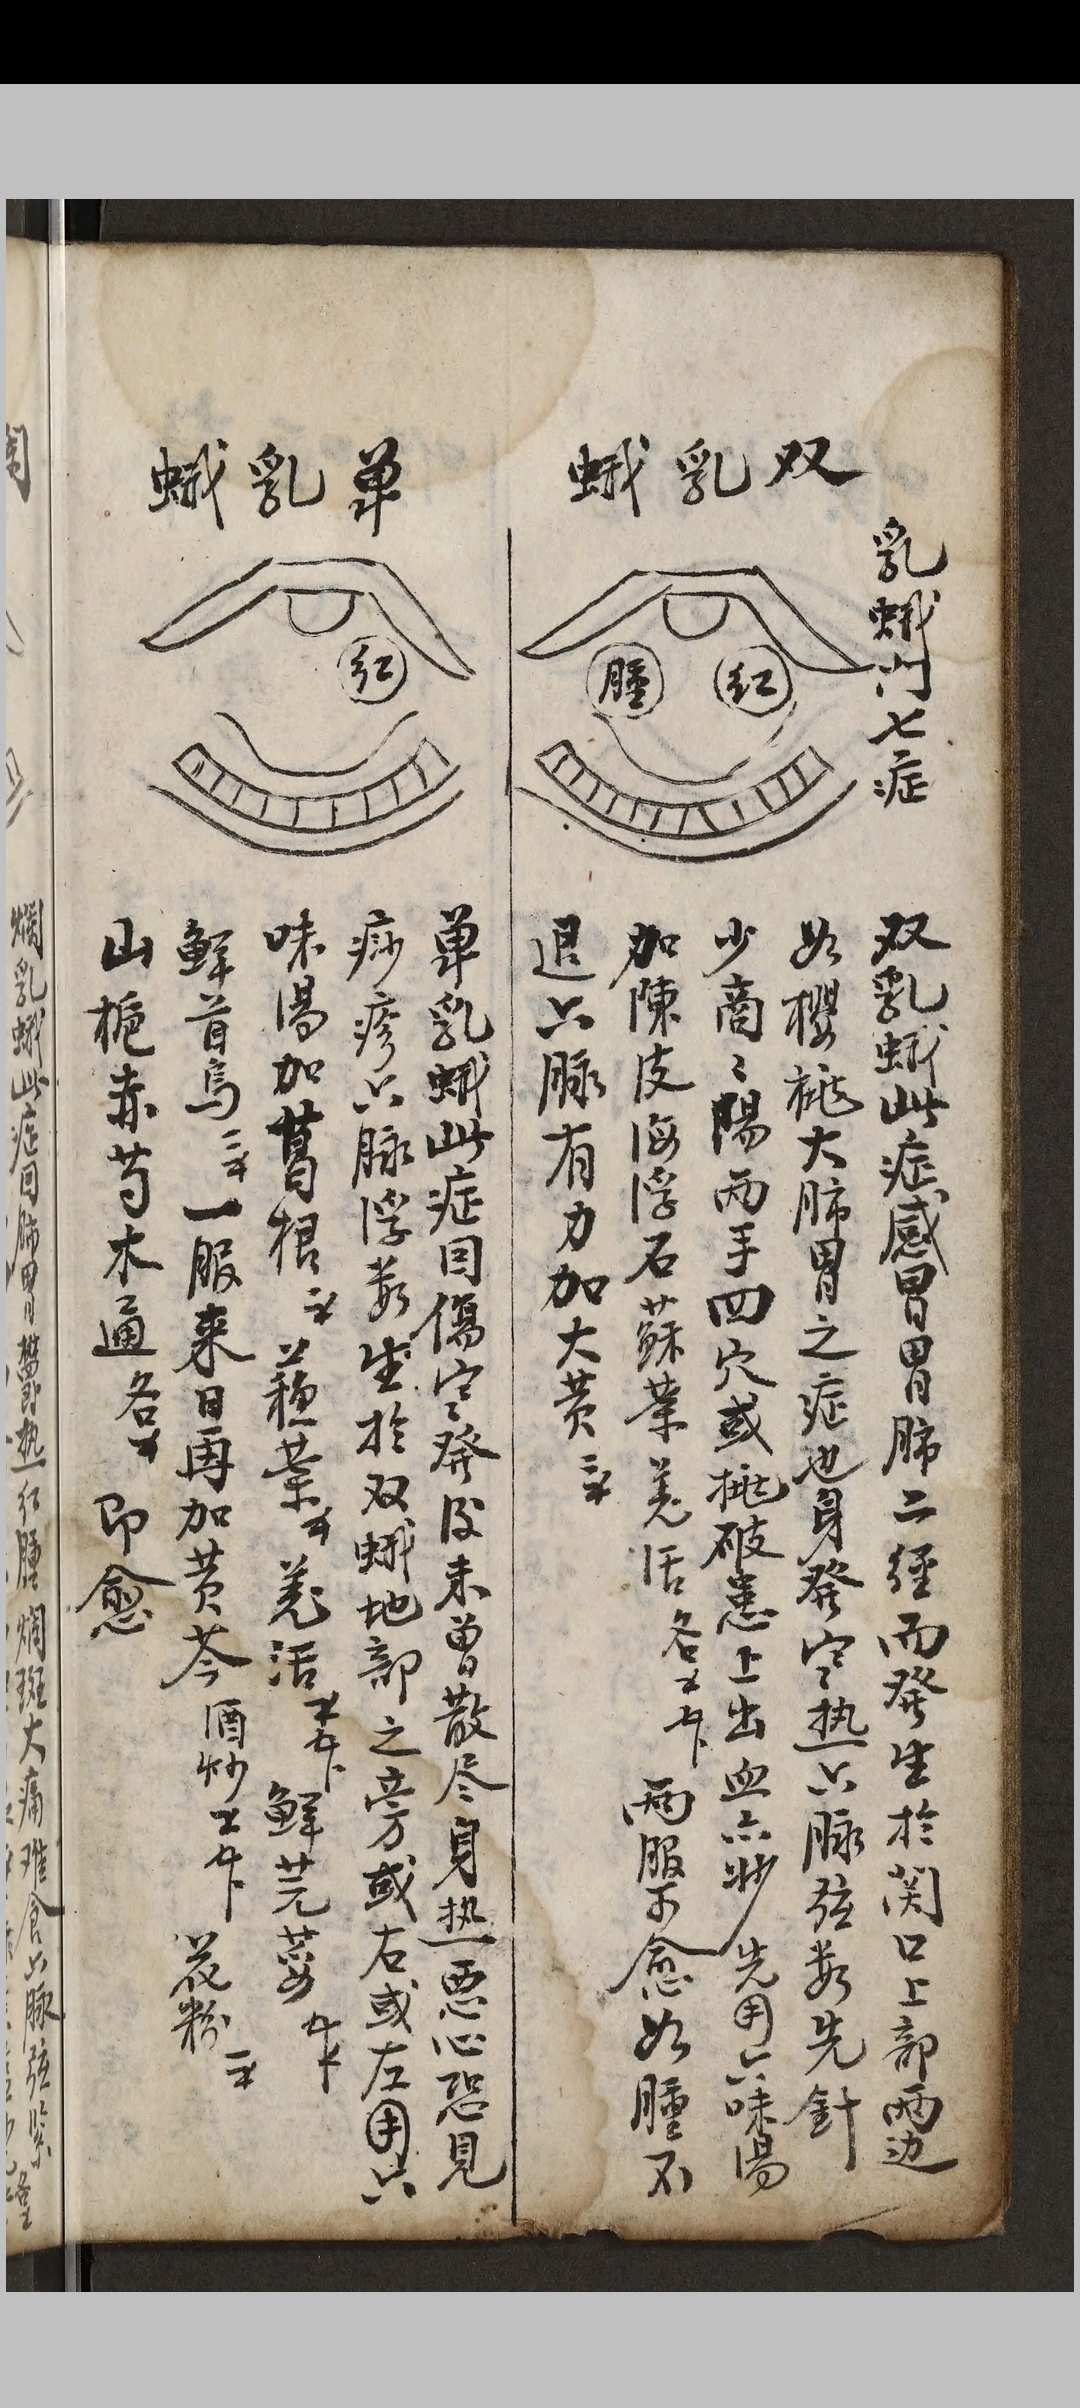 乳蛾門七症
双乳蛾
紅
腫
双乳蛾此症感胃胃肺二經而發生於関口上部兩边
如櫻桃大肺胃之症也身發寒热六脉弦数先針
少商〻陽兩手四穴或挑破患上出血亦妙先用六味湯
加陳皮海浮石蘇葉羌活各 兩服不愈如腫不
退六脉有力加大黄
单乳蛾
紅
单乳蛾此症因傷寒發後未曾散尽身热恶心恐見
痧疹六脉浮数生於双蛾地部之旁或右或左用六
味湯加葛根 蘇葉 羌活 鮮芫荽
鮮首烏 一服来日再加黄芩酒炒 花粉
山梔赤芍木通各 即愈
爛乳蛾此症因肺胃欝热红腫爛斑大痛难食六脉弦紧